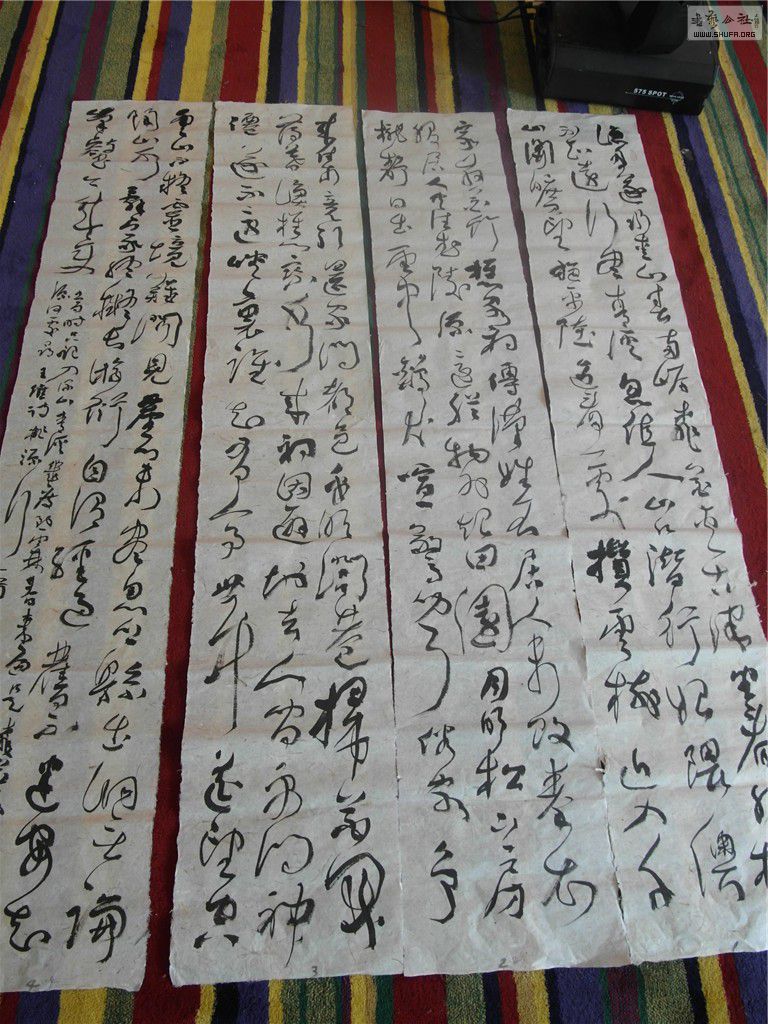 漁舟逐水愛山春兩岸桃花夾古津坐看紅樹
不知遠行盡青溪忽值人山口潛行始隈隩
山開曠望旋平陸遙看一處攢雲樹近入千
家散花竹樵客初傳漢姓名居人未改秦衣
服居人共住武陵源還從物外起田園月明松下房
櫳靜日出雲中雞犬喧驚聞俗客爭
來集競引還家問都邑平明閭巷掃花開
薄暮漁樵乘水入初因避地去人間更問神
僊遂不還峽裏誰知有人事世中遙望空
雲山不疑靈境難聞見塵心未盡思鄉縣出洞無論
隔山水辭家終擬長游衍自謂經過舊不迷安知
峯壑今來變
當時只記入深山青溪幾度到雲林春來遍是桃花水
源何處尋王維詩桃源行
1
2
3
4
575 SPOT
書法公社
WWW.SHUFA.ORG